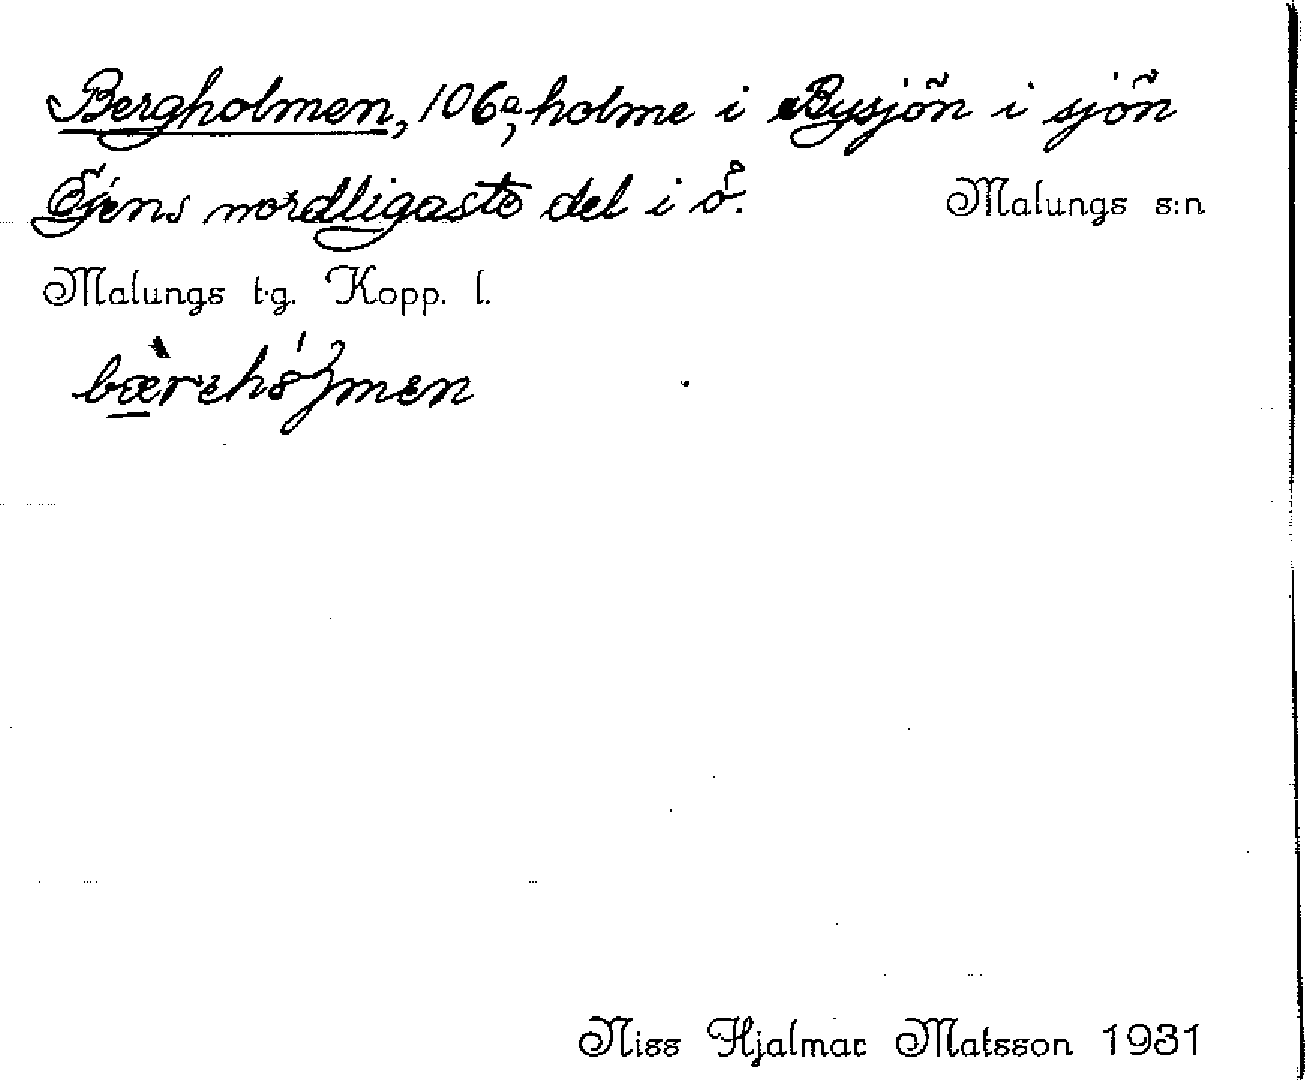 Bergholmen, 106a, holme i Bysjön i sjön
Tjéns nordligaste del i ö. Malungs s:n
Malungs t.g. Kopp. l.
Niss Hjalmar Matsson 1931